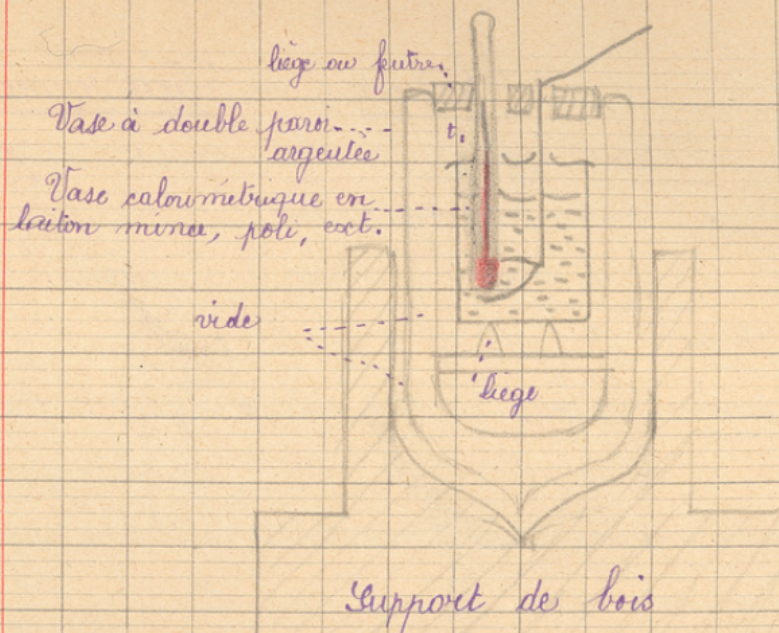 liège ou feutre
Vase à double paroi
argentée
t.
Vase calorimétrique en
laiton mince, poli, ext.
vide
liège
Support de bois